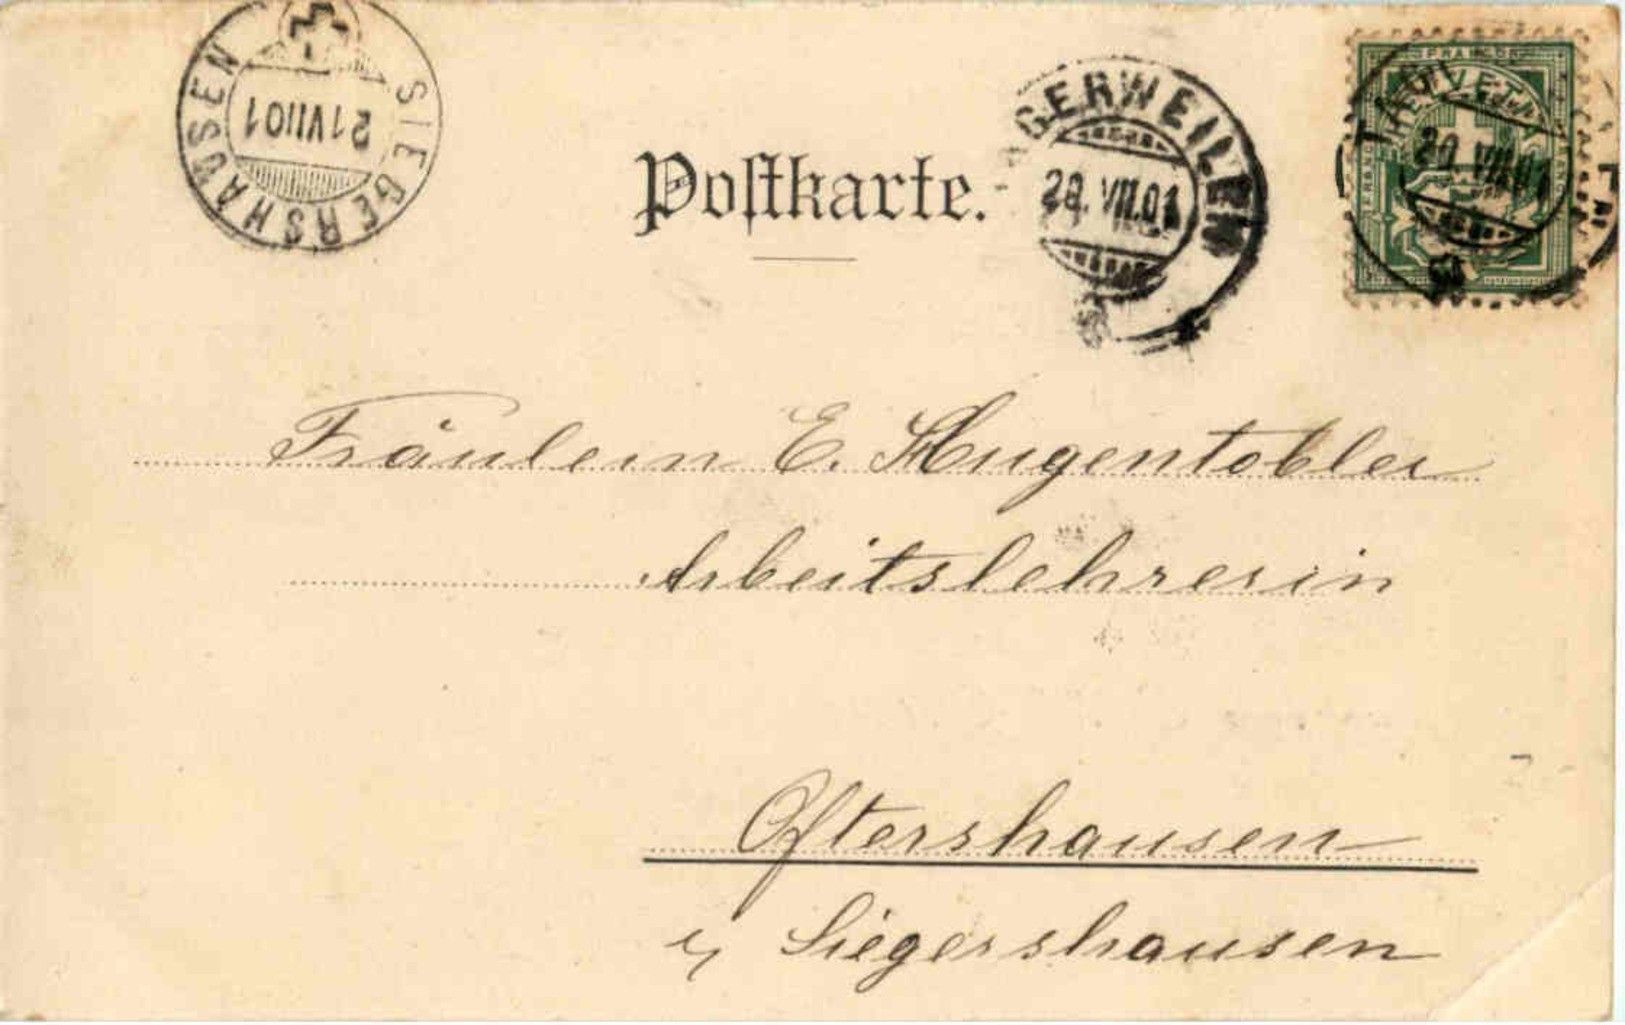 SIEGERSHAUSEN
21 VII 01
Postkarte.
GERWEILEN
20. VII. 01
FRANCO
HELVETIA
20. VII. 01
Fräulein E. Hugentobler
Arbeitslehrerin
Oftershausen
Siegershausen